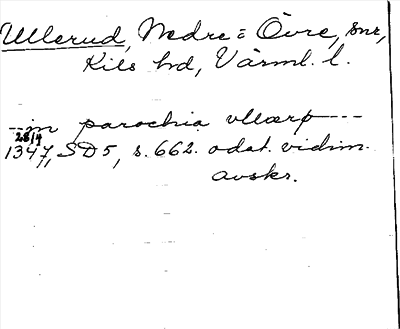 Ullerud, Nedre= Övre, snr,
Kils hd, Värml. l.
--in parochia vllærp---
28/4
1347, SD5, s. 662. odat. vidim.
avskr.